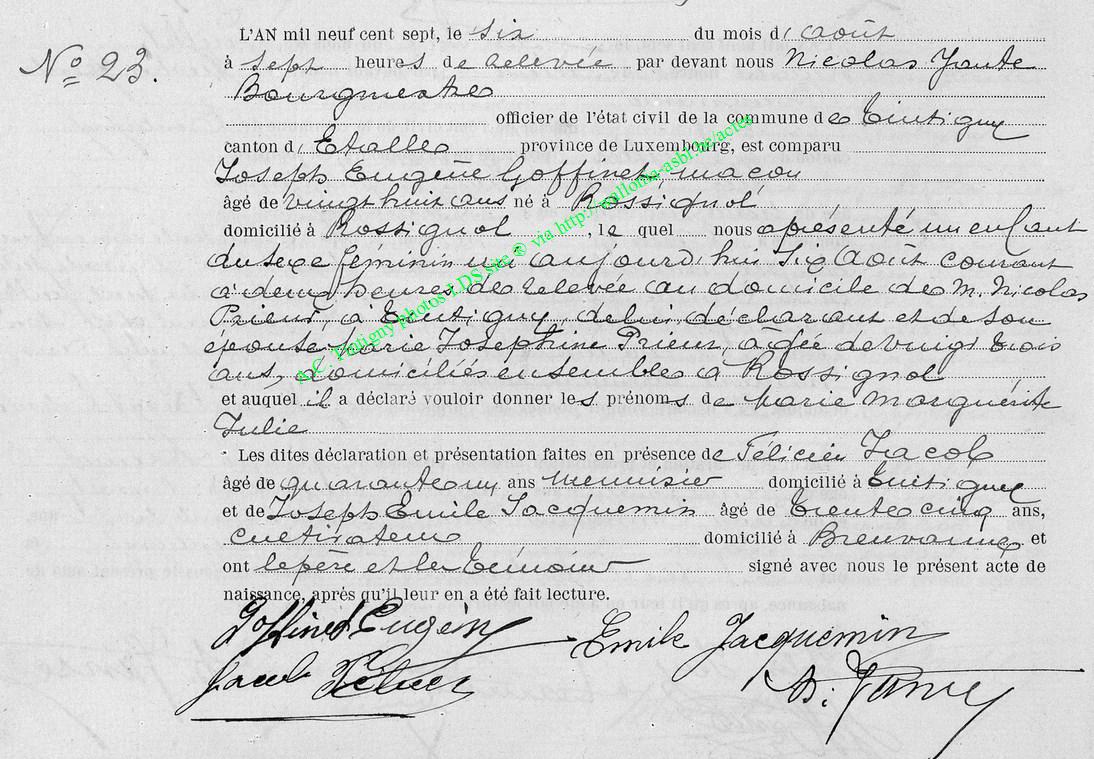 No 23.
L'AN mil neuf cent sept, le six du mois d'août
à sept heures de relevée par devant nous Nicolas
Bourgmestre
officier de l'état civil de la commune de Tintigny
canton d'Etalle province de Luxembourg, est comparu
Joseph Eugène Goffinet, maçon
âgé de vingt huit ans né à Rossignol
domicilié à Rossignol, le quel nous a présenté un enfant
du sexe féminin né aujourd'hui six août courant
à deux heures de relevée au domicile de M. Nicolas
Prieur, à Tintigny, de lui déclarant et de son
épouse Marie Joséphine Prieur, âgée de vingt trois
ans, domiciliés ensemble à Rossignol
et auquel il a déclaré vouloir donner les prénoms de Marie Marguerite
Julie
Les dites déclaration et présentation faites en présence de Félicien Jacob
âgé de quarante un ans menuisier domicilié à Tintigny
et de Joseph Emile Jacquemin âgé de trente cinq ans,
cultivateur domicilié à Breuvanne et
ont le père et les témoins signé avec nous le présent acte de
naissance, après qu'il leur en a été fait lecture.
Goffinet Eugène Emile Jacquemin
Jacob
A.C. Tintigny photos LDS site ® via http://wallonia-asbl.be/actes